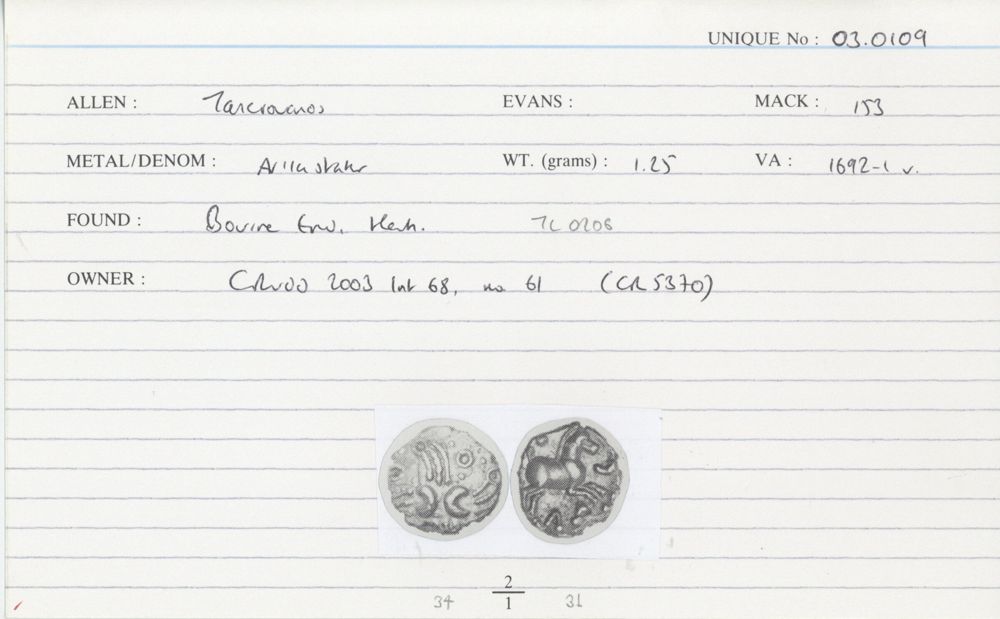 UNIQUE No : 03.0109
ALLEN : Tasciovanos EVANS : MACK : 153
METAL/DENOM : AV 1/4 stater WT. (grams) : 1.25 VA : 1692-1 v.
FOUND : Herts. TL 0206
OWNER : 2003 68, no 61 (CR 5370)
2
34 1 31